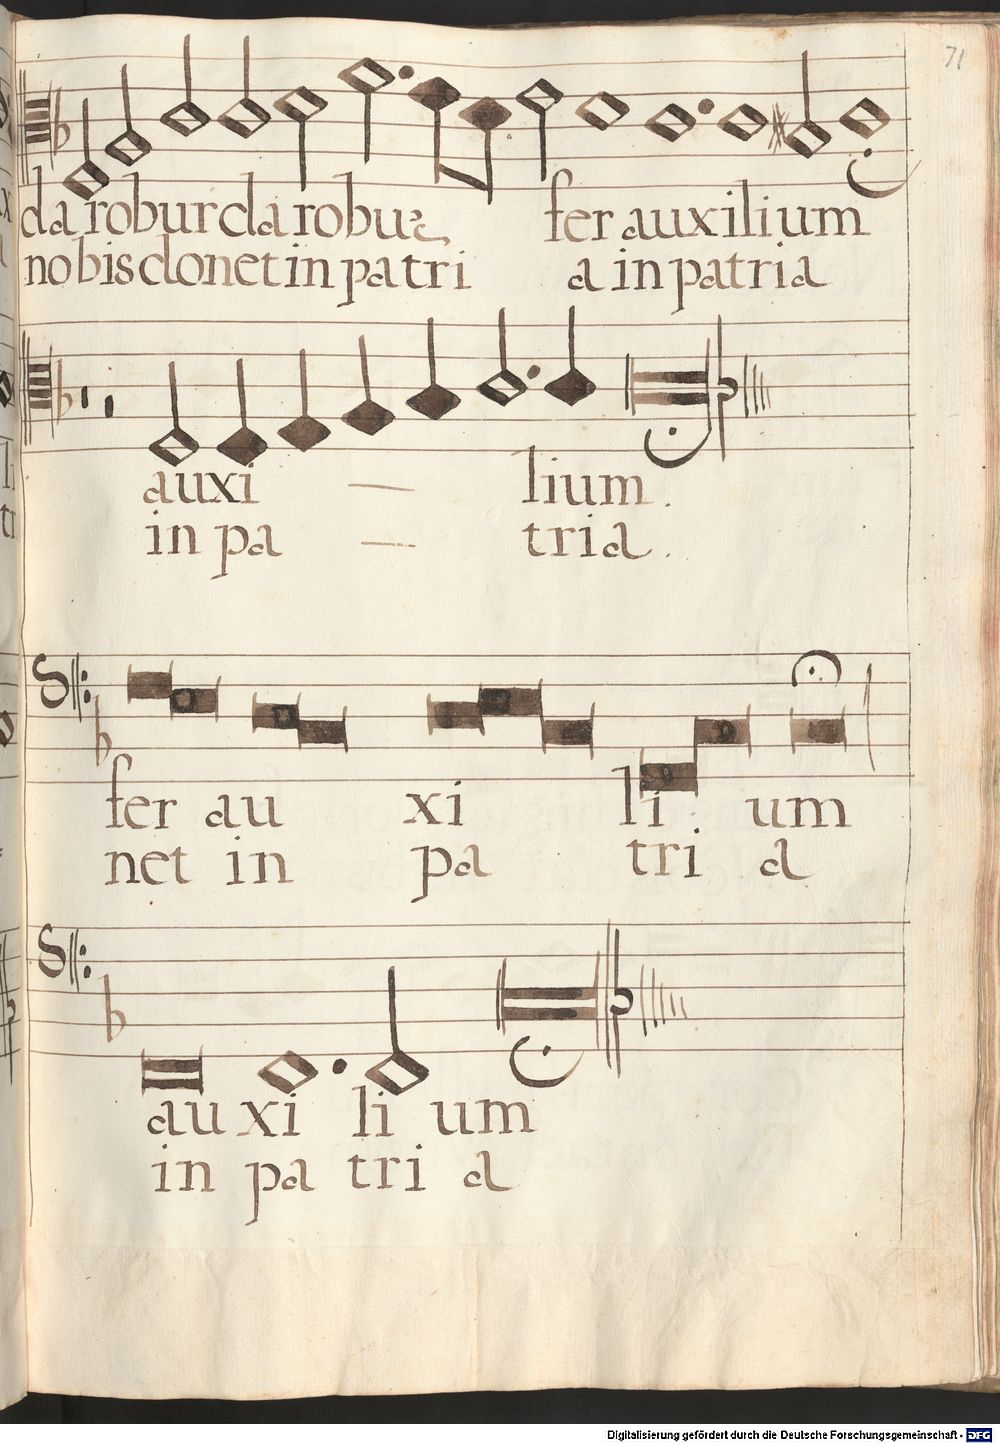 71
da robur da robur fer auxilium
nobis donet in patri a in patria
auxi — lium.
in pa — tria.
fer au xi li um
net in pa tri a
au xi li um
in pa tri a
Digitalisierung gefördert durch die Deutsche Forschungsgemeinschaft - DFG